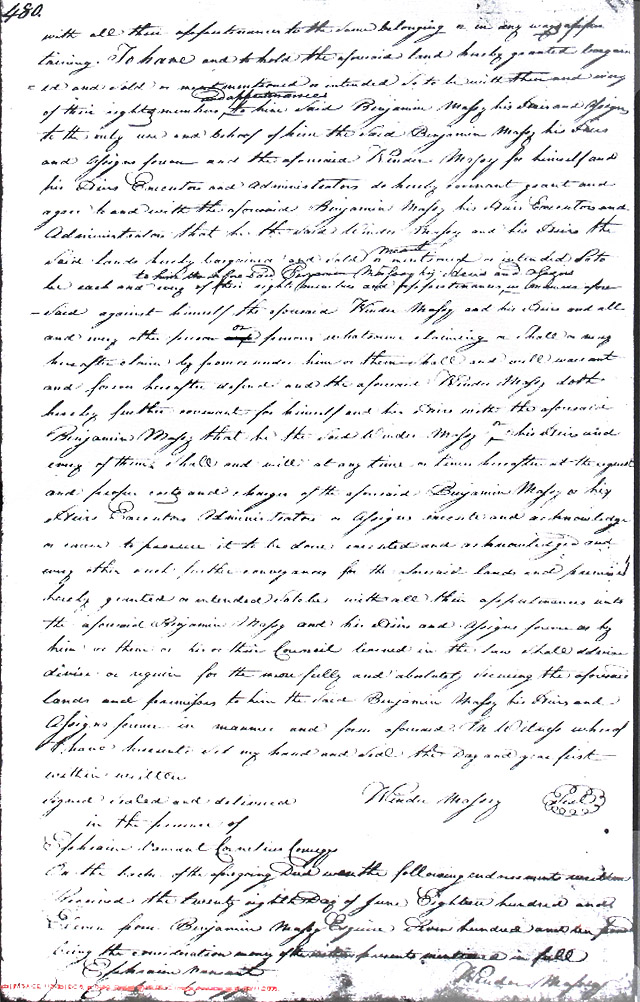 480.
with all their appurtenances to the same belonging or in any ways apper
taining. To have and to hold the aforesaid land hereby granted bargain
=ed and sold or meant mentioned or intended so to be with their and every
of their rights members appurtenances to him said Benjamin Massy his Heirs and Assigns
to the only use and behoof of him the said Benjamin Massy his Heirs
and Assigns forever and the aforesaid Winder Massy for himself and
his Heirs Executors and Administrators do hereby covenant grant and
agree to and with the aforesaid Benjamin Massy his Heirs Executors and
Administrators that he the said Winder Massy and his Heirs the
said lands hereby bargained and sold meant or mentioned or intended so to
to him the aforesaid Benjamin Massey his Heirs and Assigns
be each and every of their rights members and appurtenances as afore
=said against himself the aforesaid Winder Massy and his Heirs and all
and every other person or persons whatsoever claiming or shall or may
hereafter claim by from or under him or them shall and will warrant
and forever hereafter defend and the aforesaid Winder Massy doth
hereby further covenant for himself and his Heirs with the aforesaid
Benjamin Massy that he the said Winder Massy or his Heirs and
every of them shall and will at any time or times hereafter at the request
and proper costs and charges of the aforesaid Benjamin Massy or his
Heirs Executors Administrators or Assigns execute and acknowledge
or cause to procure it to be done executed and acknowledged and
every other such further conveyances for the aforesaid lands and premises
hereby granted or intended so to be with all their appurtenances unto
the aforesaid Benjamin Massy and his Heirs and Assigns forever as by
him or them or his or their Council learned in the law shall advise
devise or require for the more fully and absolutely securing the aforesaid
lands and premisses to him the said Benjamin Massy his Heirs and
Assigns forever in manner and form aforesaid In Witness whereof
I have hereunto set my hand and seal the Day and year first
within written
signed sealed and delivered Winder Massey Seal
in the presence of
Ephraim Vansant Cornelius Comegys
On the back of the aforegoing Deed was the following endorsement written
Received the twenty eighth Day of June Eighteen hundred and
Eleven from Benjamin Massy Esquire hundred and ten pounds
being the consideration money of the within presents mentioned in full
Ephraim Vansant Winder Massey